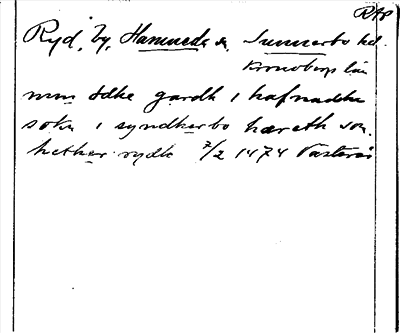 RAP
Ryd, by, Hamneda sn, Sunnerbo hd.
Kronobergs län
min ödke gardh i hafnadha
sokn i syndherbo hæreth som
hether rydh 7/2 1474 Västerås